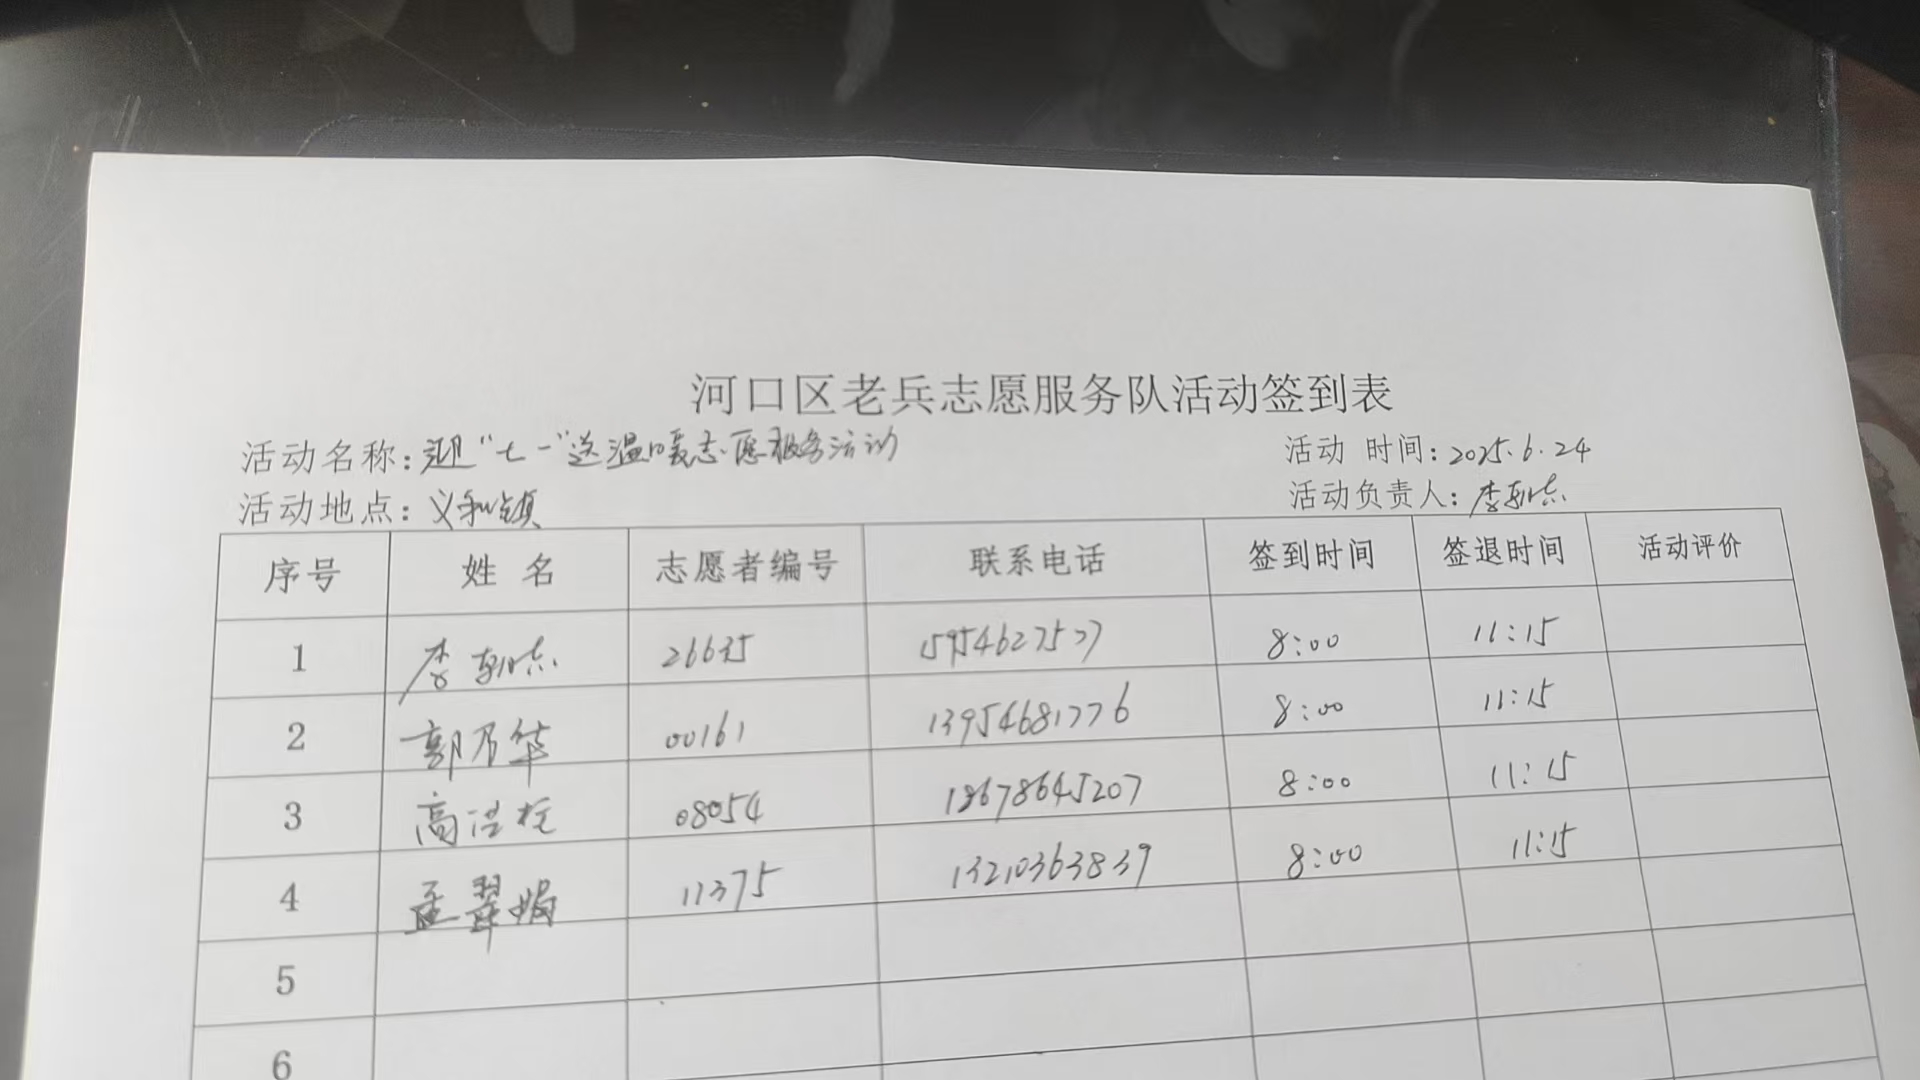 河口区老兵志愿服务队活动签到表
活动名称：迎"七一"送温暖志愿服务活动 活动 时间：2025.6.24
活动地点：义和镇 活动负责人：李朝志
序号 姓 名 志愿者编号 联系电话 签到时间 签退时间 活动评价
1 李朝志 26635 15954627577 8:00 11:15
2 郭乃华 00161 13954681776 8:00 11:15
3 高 08054 18678645207 8:00 11:15
4 孟翠娟 11375 13210363839 8:00 11:15
5
6